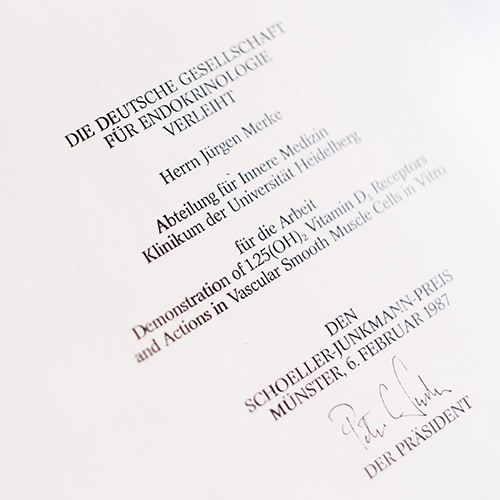 DIE DEUTSCHE GESELLSCHAFT
FÜR ENDOKRINOLOGIE
VERLEIHT
Herrn Jürgen Merke
Abteilung für Innere Medizin
Klinikum der Universität Heidelberg
für die Arbeit
Demonstration of 1.25(OH)₂ Vitamin D₃ Receptors
and Actions in Vascular Smooth Muscle Cells in Vitro
DEN
SCHOELLER-JUNKMANN-PREIS
MÜNSTER, 6. FEBRUAR 1987
DER PRÄSIDENT